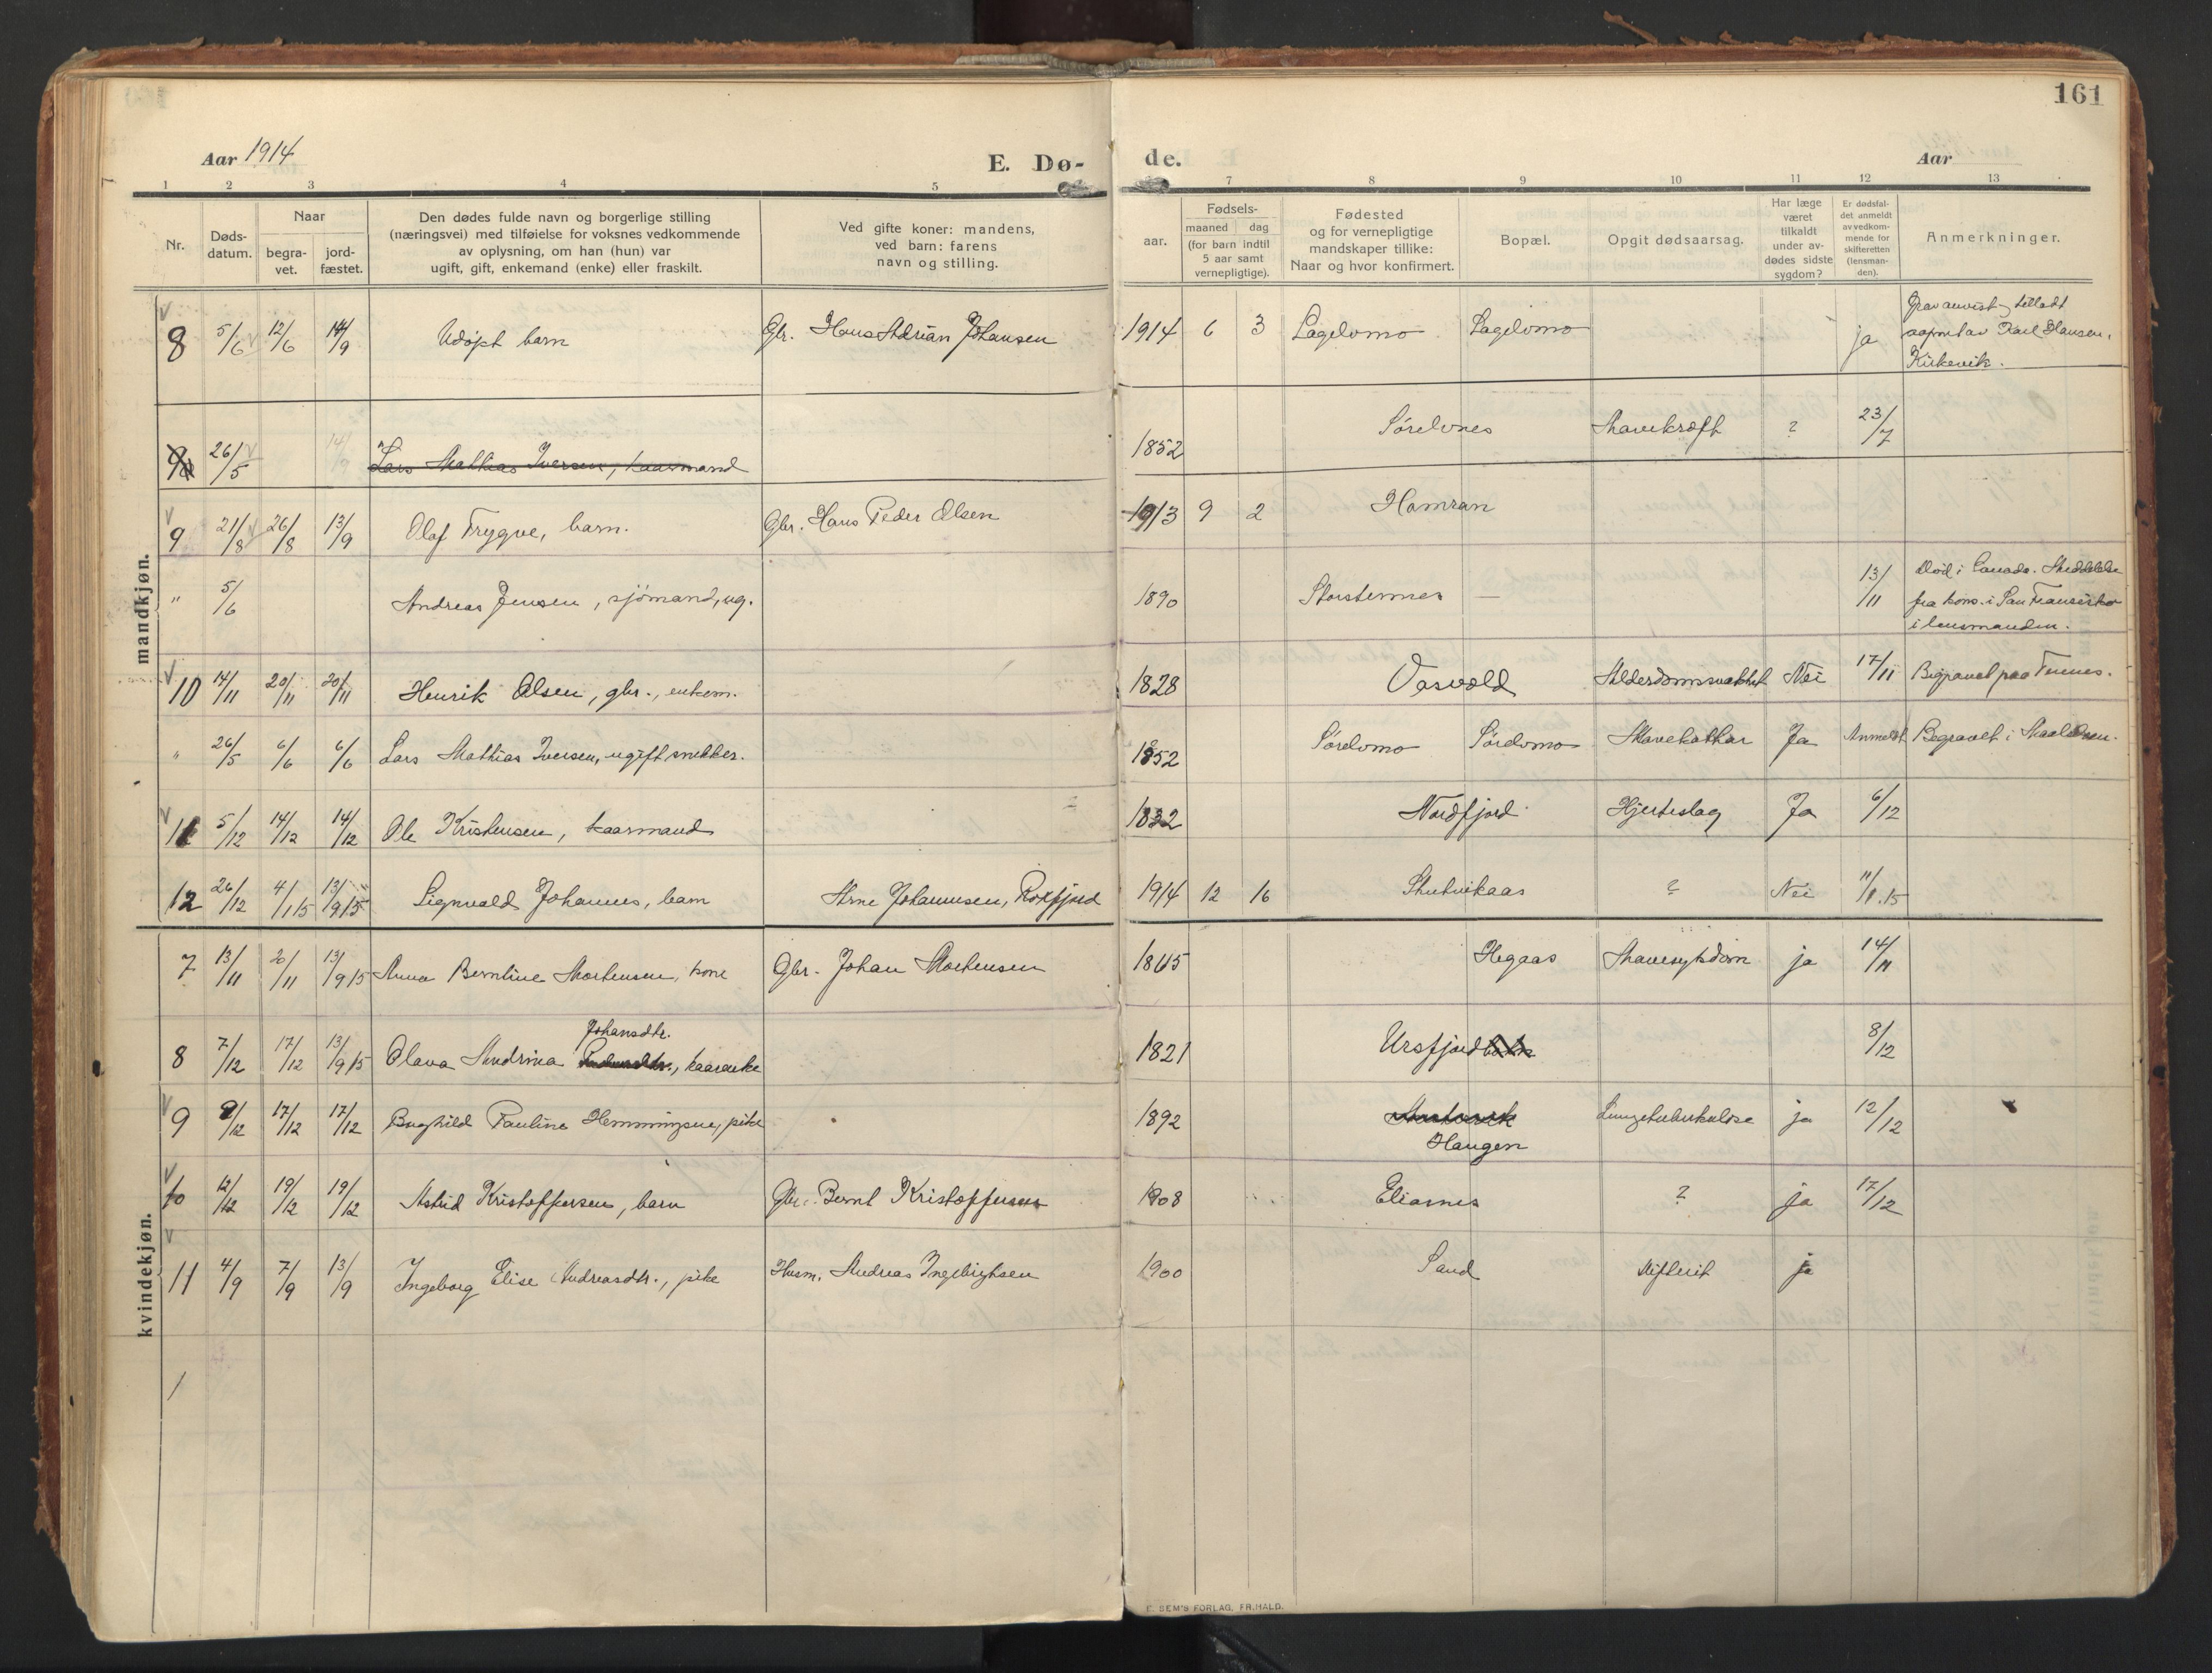 161
Aar 1914
E. Dø-
de.
Aar
1 2 3 4 5 7 8 9 10 11 12 13
Nr.
Døds-
datum.
Naar
begra-
vet.
jord-
fæstet.
Den dødes fulde navn og borgerlige stilling
(næringsvei) med tilføielse for voksnes vedkommende
av oplysning, om han (hun) var
ugift, gift, enkemand (enke) eller fraskilt.
Ved gifte koner: mandens,
ved barn: farens
navn og stilling.
aar.
Fødsels-
maaned dag
(for barn indtil
5 aar samt
vernepligtige).
Fødested
og for vernepligtige
mandskaper tillike:
Naar og hvor konfirmert.
Bopæl.
Opgit dødsaarsag.
Har læge
været
tilkaldt
under av-
dødes sidste
sygdom?
Er dødsfal-
det anmeldt
av vedkom-
mende for
skifteretten
(lensman-
den).
Anmerkninger.
mandkjøn.
8 5/6 12/6 14/9 Udøpt barn Gbr. Hans Adrian Johansen 1914 6 3 Lagelvmo Lagelvmo ja Grav anvist, tilladt
av Karl Hansen,
Kirkevik.
26/5 14/9 Lars Mathias Iversen, kaarmand 1852 Sørelvnes Mavekræft ? 23/7
9 21/8 26/8 13/9 Olaf Trygve, barn. Gbr. Hans Peder Olsen 1913 9 2 Hamran
" 5/6 Andreas Jensen, sjømand, ug. 1890 Storstennes — 13/11 Død i Canada. Meddelelse
fra kons. i San Fransisko
i lensmanden.
10 14/11 20/11 20/11 Henrik Olsen, gbr., enkem. 1828 Vasvold Alderdomsvakhet Nei 17/11 Begravet paa Tennes.
" 26/5 6/6 6/6 Lars Mathias Iversen, ugift snekker. 1852 Sørelvmo Sørelvmo Mavekathar Ja Anmeldt Begravet i Maalselven.
11 5/12 14/12 14/12 Ole Kristensen, kaarmand 1832 Nordfjord Hjerteslag Ja 6/12
12 26/12 4/1 15 13/9 15 Sigvald Johannes, barn Arne Johannesen, Roxfjord 1914 12 16 Slutvikaas ? Nei 11/1.15
kvindekjøn.
7 13/11 2/11 13/9 15 Anna Berntine Mortensen, kone Gbr. Johan Mortensen 1865 Hegaas Mavesykdom ja 14/11
Johansdtr.
8 7/12 17/12 13/9 15 Olava Andrina kaarenke 1821 Ursfjord 8/12
9 9/12 17/12 17/12 Borghild Pauline Hemmingsen, pike 1892 Lungetuberkulose ja 12/12
Haugen
10 12/12 19/12 19/12 Astrid Kristoffersen, barn Gbr. Bernt Kristoffersen 1908 Eliasnes ? ja 17/12
11 4/9 7/9 13/9 Ingeborg Elise Andreasdtr., pike Husm. Andreas Ingebrigtsen 1900 Sand Difterit ja
1
E. SEM'S FORLAG, FR.HALD.